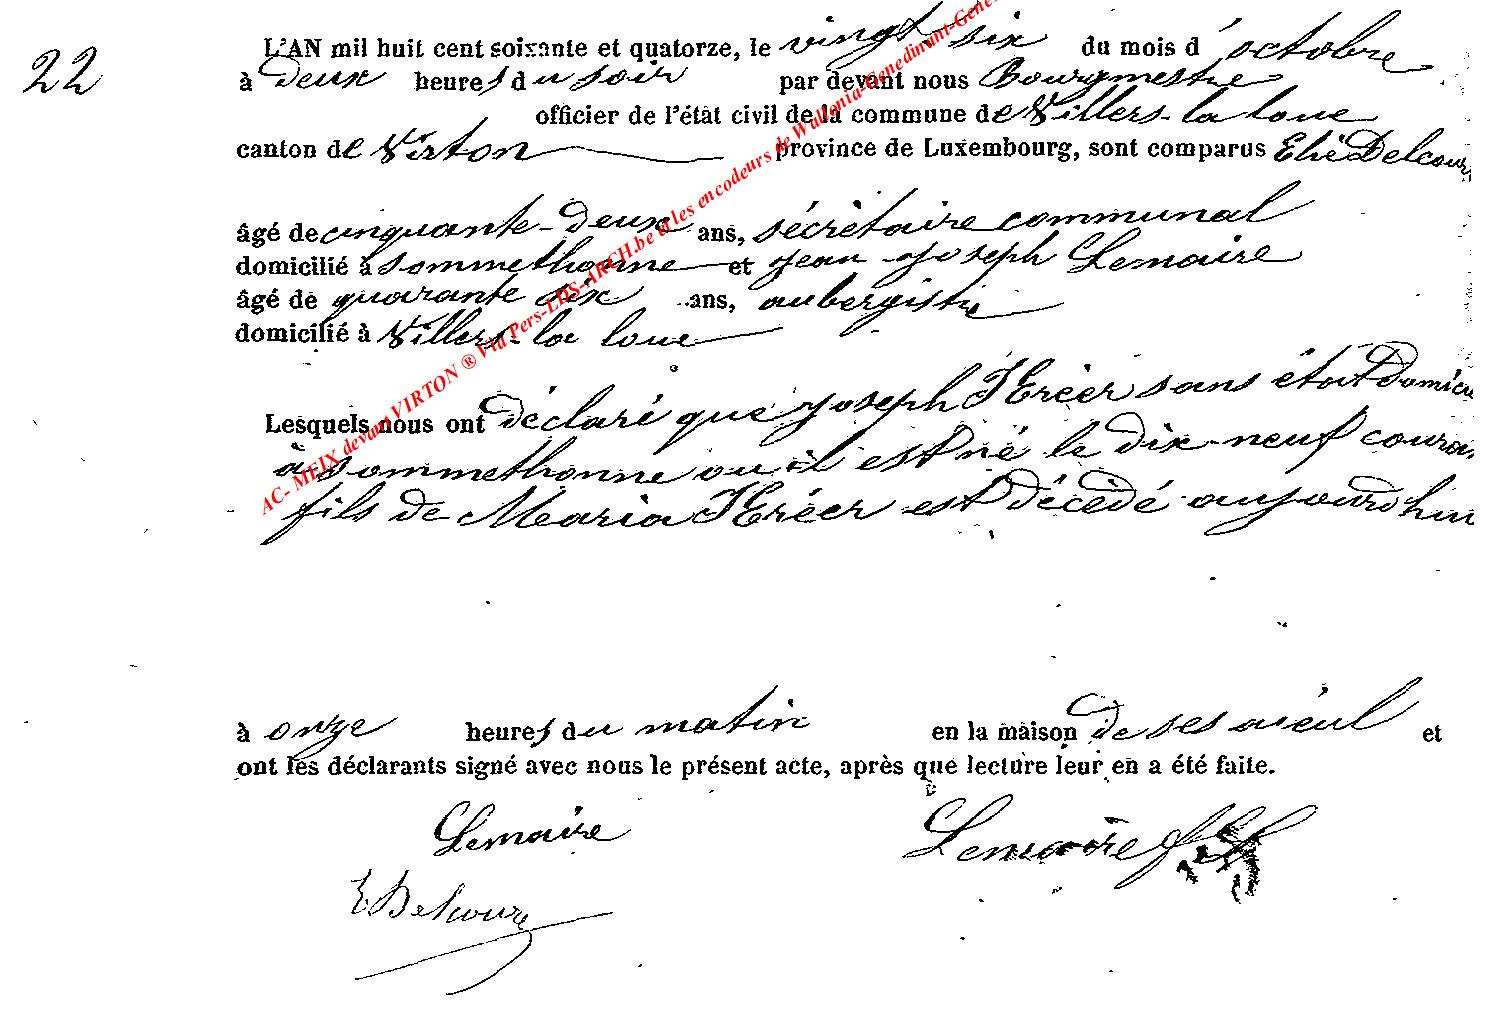 22
L'AN mil huit cent soixante et quatorze, le vingt six du mois d'octobre
à deux heures du soir par devant nous Bourgmestre
officier de l'état civil de la commune de Villers-la loue
canton de Virton province de Luxembourg, sont comparus Elié Delcour
âgé de cinquante-deux ans, sécrétaire communal
domicilié à Sommethonne et Jean Joseph Lemaire
âgé de quarante six ans, aubergiste
domicilié à Villers-la loue
Lesquels nous ont déclaré que Joseph sans état Domicilié
à Sommethonne ou il est né le dix-neuf couran
fils de Maria est Décédé aujourd'hui
à onze heures du matin en la maison de ses aieul et
ont les déclarants signé avec nous le présent acte, après que lecture leur en a été faite.
Lemaire Lemaire
E Delcour
AC- MEIX devant VIRTON ® Via Pers-LDS-ARCH.be et les encodeurs de Wallonia-Genedinant-Gene